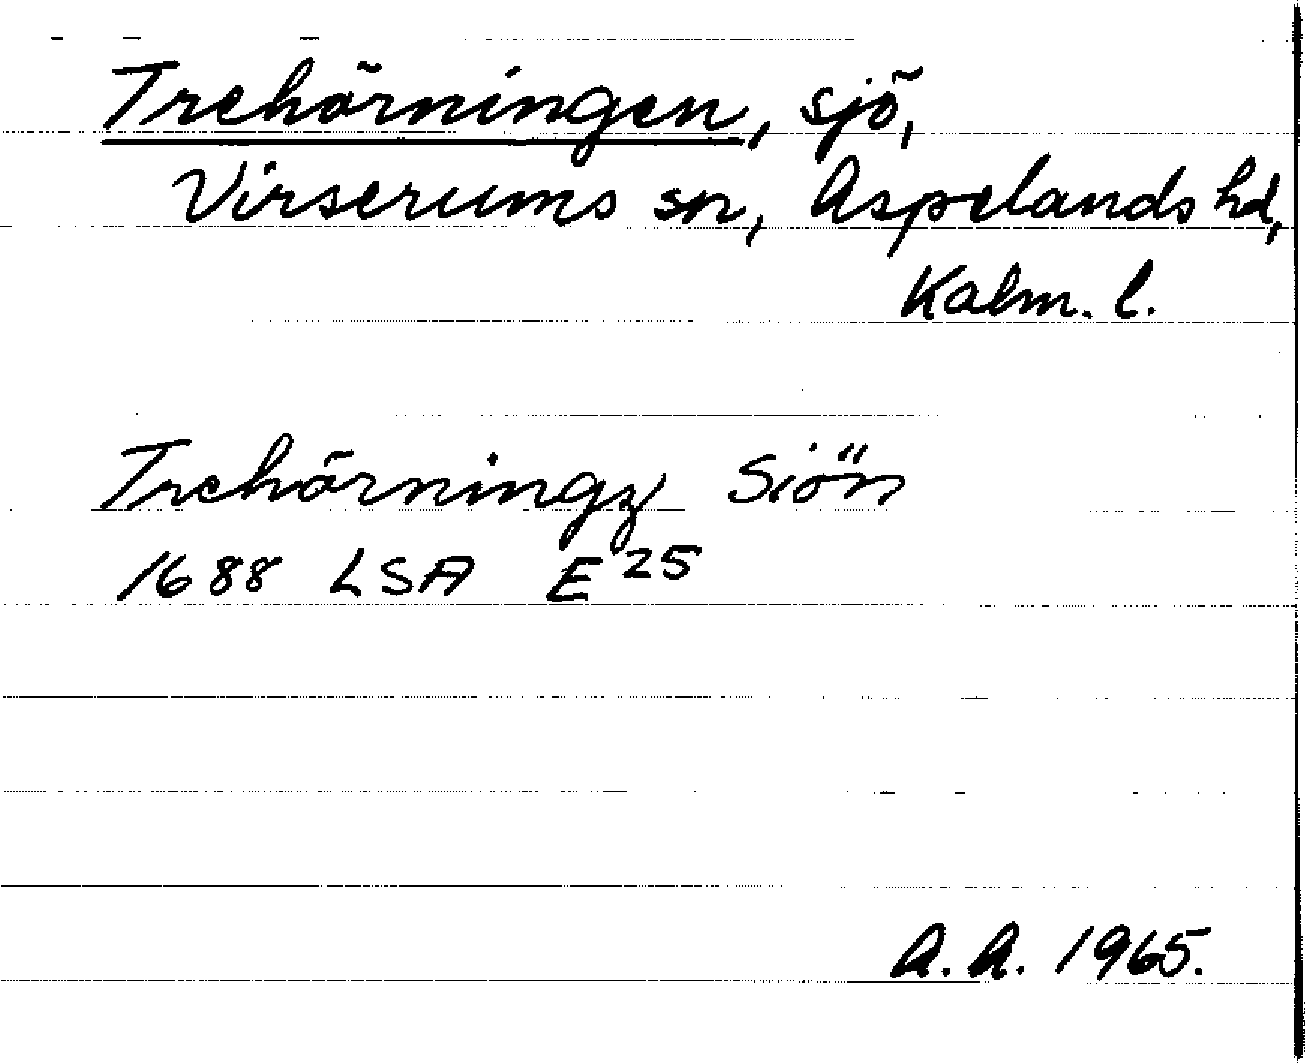 Trehörningen, sjö,
Virserums sn, Aspelands hd,
Kalm. l.
Trehörningz Siön
1688 LSA E 25
A. A. 1965.